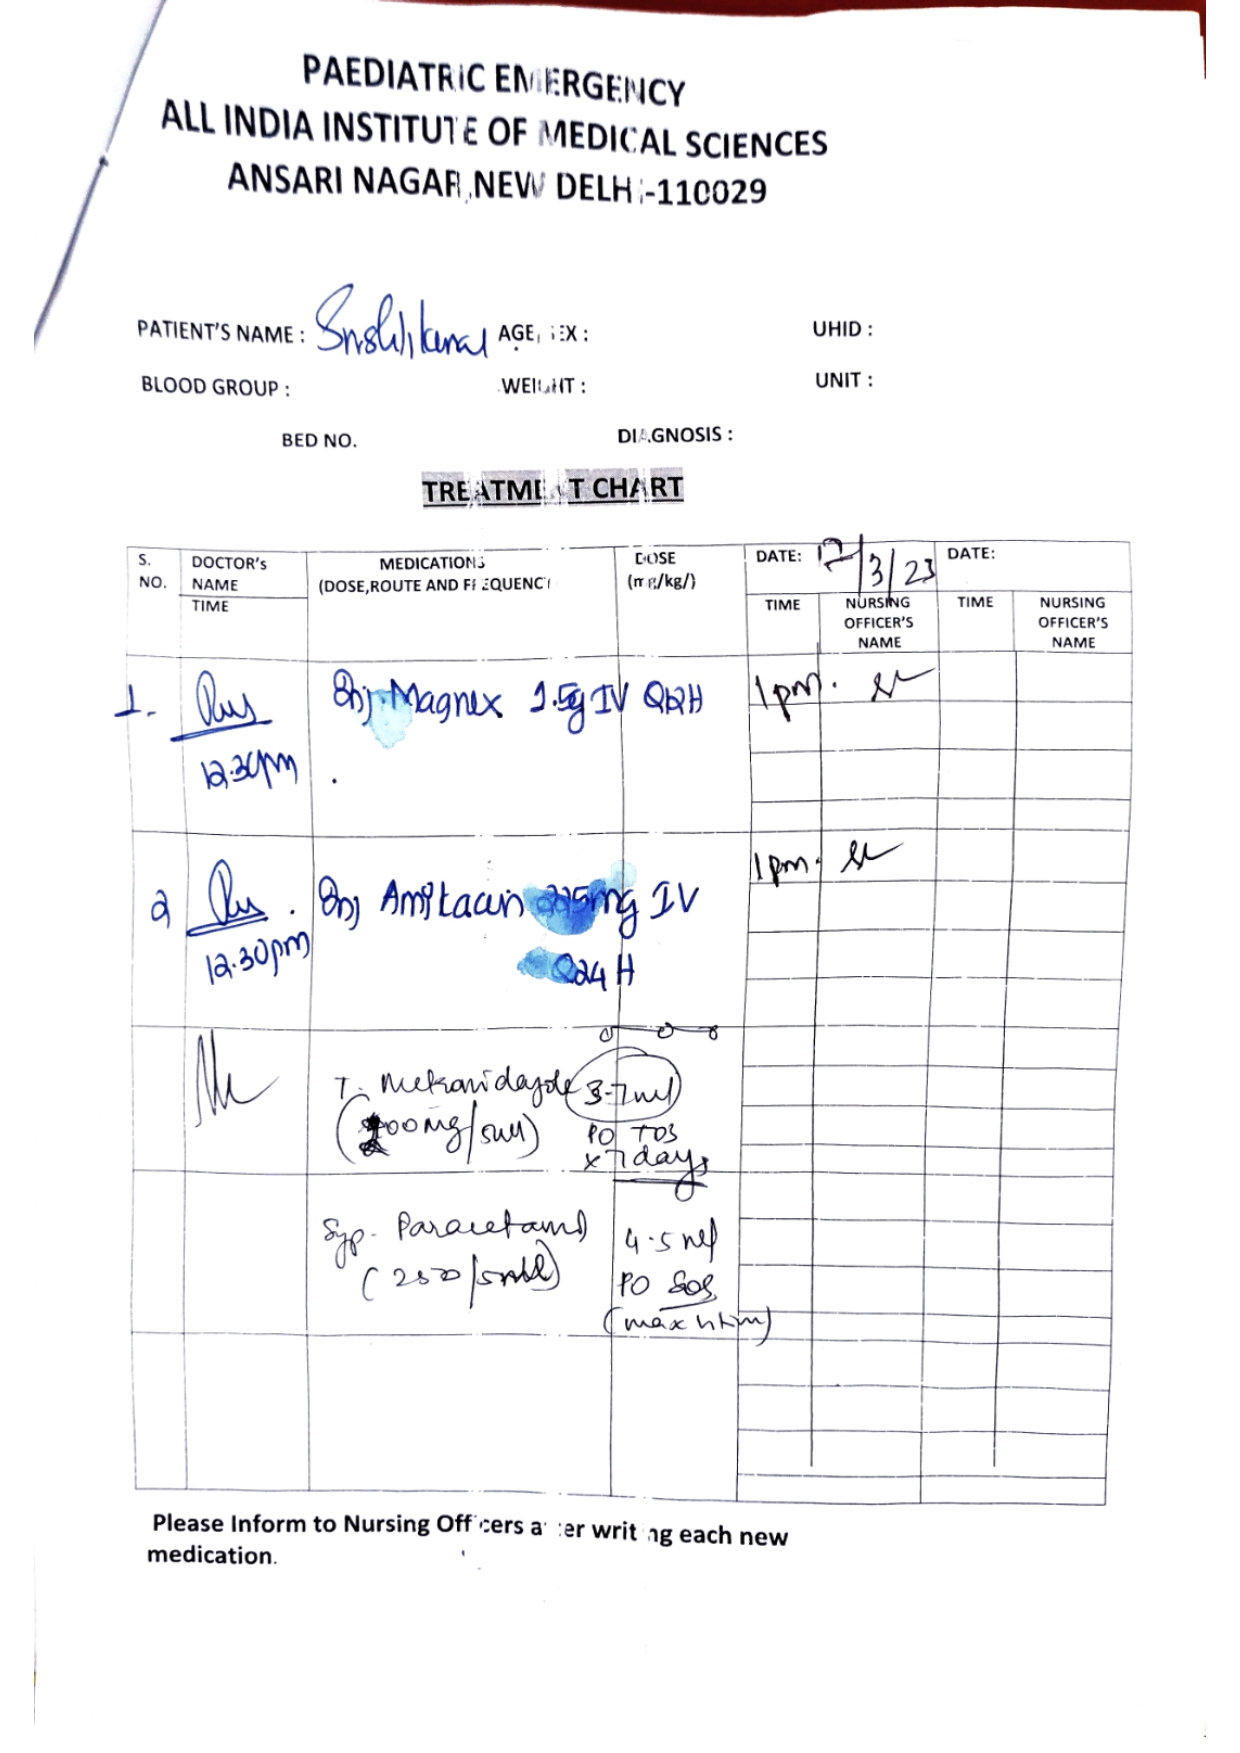 PAEDIATRIC EMERGENCY
ALL INDIA INSTITUTE OF MEDICAL SCIENCES
ANSARI NAGAR, NEW DELHI-110029
PATIENT'S NAME : AGE, SEX : UHID :
BLOOD GROUP : WEIGHT : UNIT :
BED NO. DIAGNOSIS :
TREATMENT CHART
S. NO. DOCTOR's NAME TIME MEDICATIONS (DOSE,ROUTE AND FREQUENCY DOSE (mg/kg/) DATE: 17/3/23 DATE:
TIME NURSING OFFICER'S NAME TIME NURSING OFFICER'S NAME
1. Inj. Magnex 1.5g IV Q12H 1pm.
12.30pm
2 Inj Amikacin 225mg IV 1pm.
12.30pm Q24H
T. Metronidazole 3.7ml
(200mg/5ml) PO TDS
x 7 days
Syp. Paracetamol 4.5ml
(250/5ml) PO SOS
(max
Please Inform to Nursing Officers after writing each new
medication.